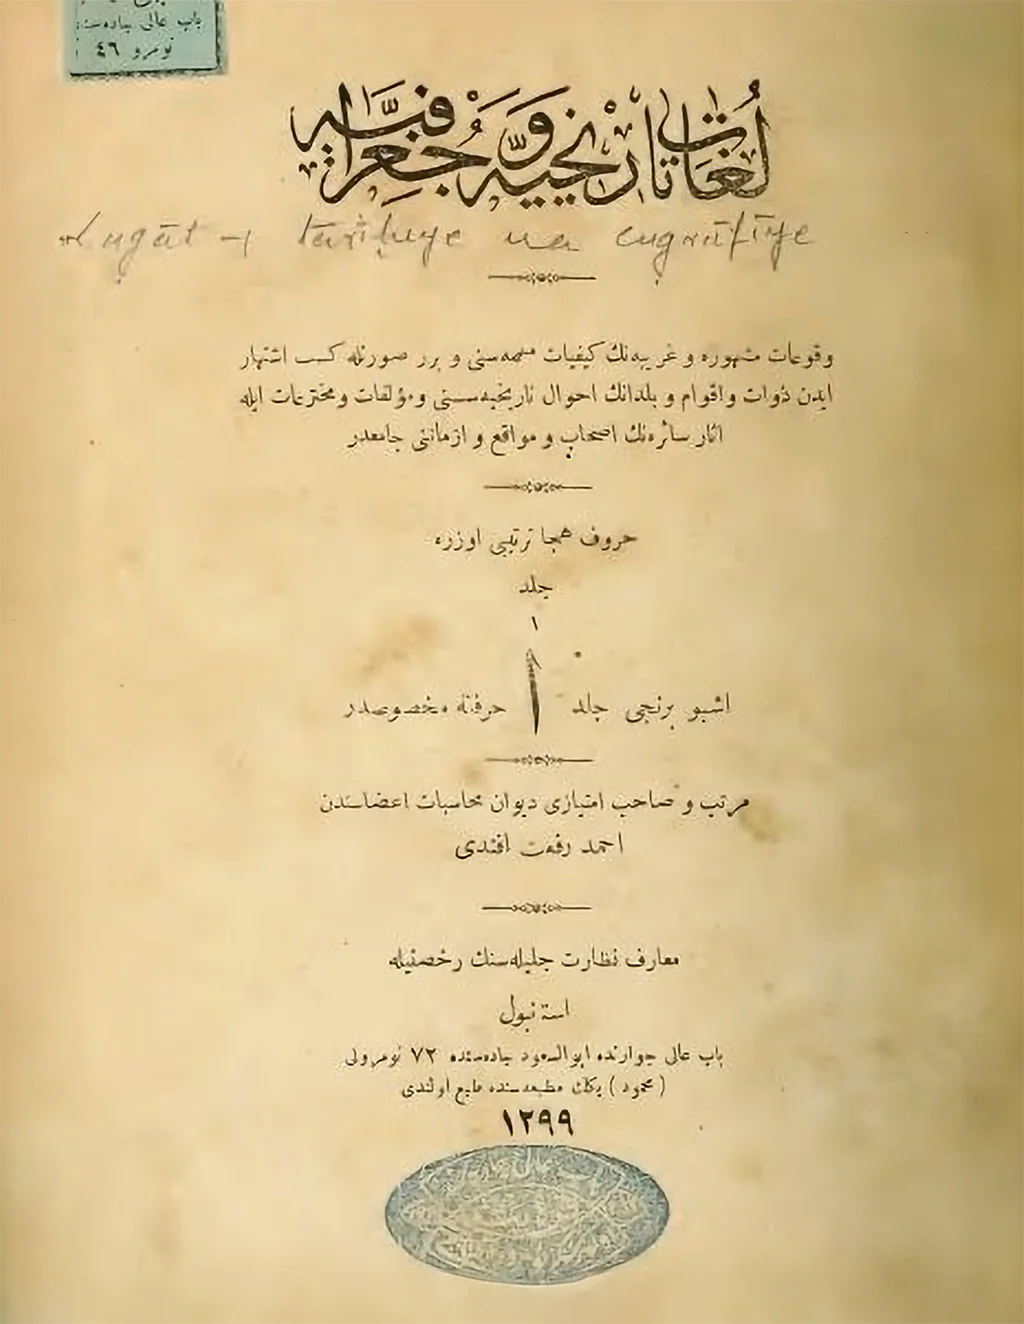 باب عالی جاده‌سنده
نومرو ٤٦
لُغَات تَارِيخِيَّه وَ جُغرَافِيَّه
Lugāt-i tārīhiye va cugrāfiye
وقوعات مشهوره و غریبه‌نك كیفیات مهمه‌سنی و برر صورتله كسب اشتهار
ایدن ذوات و اقوام و بلدانك احوال تاریخیه‌سنی و مؤلفات و مخترعات ایله
اثار سائره‌نك اصحاب و مواقع و ازماننی جامعدر
حروف هجا ترتیبی اوزره
جلد
١
اشبو برنجی جلد ا حرفنه مخصوصدر
مرتب و صاحب امتیازی دیوان محاسبات اعضاسندن
احمد رفعت افندی
معارف نظارت جلیله‌سنك رخصتیله
استانبول
باب عالی جوارنده ابوالسعود جاده‌سنده ٧٢ نومرولی
(محمود) بكك مطبعه‌سنده طبع اولندی
١٢٩٩